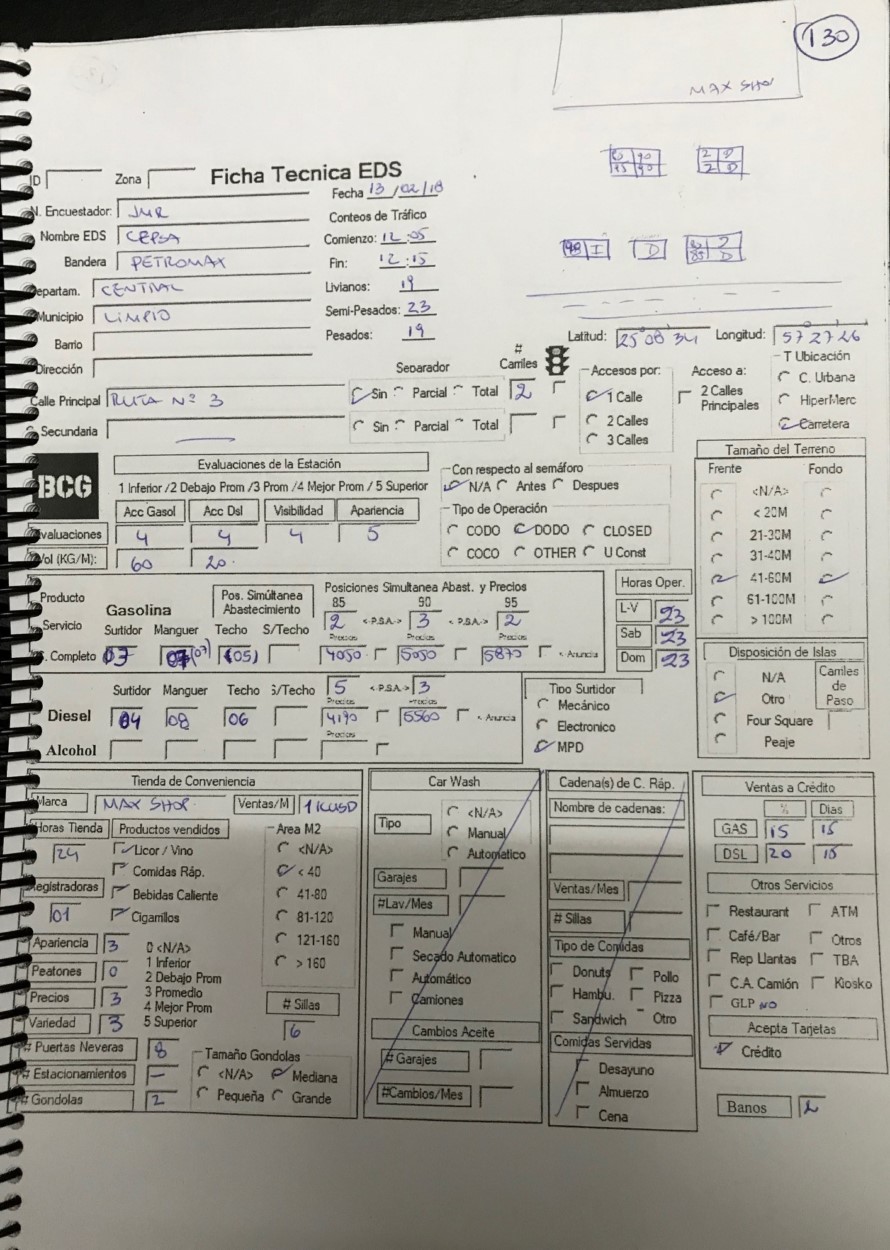 130
MAX SHOP
85 90
95 90
2 D
2 D
98 I
D
Ficha Tecnica EDS
ID
Zona
Fecha 13/02/18
N. Encuestador: JMR
Conteos de Tráfico
Nombre EDS CEPSA
Comienzo: 12:05
Bandera PETROMAX
Fin: 12:15
Departam. CENTRAL
Livianos: 19
Municipio LIMPIO
Semi-Pesados: 23
Barrio
Pesados: 19
Latitud: 25 08 34 Longitud: 57 27 26
Dirección
Separador # Carriles
Accesos por: Acceso a: T Ubicación
Calle Principal RUTA Nº 3
Sin Parcial Total 2
1 Calle 2 Calles Principales C. Urbana
HiperMerc
Secundaria
Sin Parcial Total
2 Calles Carretera
3 Calles
BCG
Evaluaciones de la Estación
1 Inferior /2 Debajo Prom /3 Prom /4 Mejor Prom / 5 Superior
Acc Gasol Acc Dsl Visibilidad Apariencia
Evaluaciones 4 4 4 5
Vol (KG/M): 60 20
Con respecto al semáforo
N/A Antes Despues
Tipo de Operación
CODO DODO CLOSED
COCO OTHER U Const
Tamaño del Terreno
Frente Fondo
<N/A>
< 20M
21-30M
31-40M
41-60M
61-100M
> 100M
Producto
Servicio
S. Completo
Gasolina
Pos. Simúltanea Abastecimiento
Posiciones Simultanea Abast. y Precios
85 90 95
2 <-P.S.A.-> 3 <-P.S.A.-> 2
Surtidor Manguer Techo S/Techo
Precios Precios Precios
07 (07) (05) 4050 5050 5870 <- Anuncia
Horas Oper.
L-V 23
Sab 23
Dom 23
Disposición de Islas
N/A
Otro
Four Square
Peaje
Carriles de Paso
Diesel
Surtidor Manguer Techo S/Techo 5 <-P.S.A.-> 3
Precios Precios
04 08 06 4190 5560 <- Anuncia
Alcohol
Precios
Tipo Surtidor
Mecánico
Electronico
MPD
Tienda de Conveniencia
Marca MAX SHOP Ventas/M 1KUSD
Horas Tienda 24
Productos vendidos
Licor / Vino
Comidas Ráp.
Bebidas Caliente
Cigarrillos
Area M2
<N/A>
< 40
41-80
81-120
121-160
> 160
Registradoras 01
Apariencia 3
Peatones 0
Precios 3
Variedad 3
0 <N/A>
1 Inferior
2 Debajo Prom
3 Promedio
4 Mejor Prom
5 Superior
# Sillas 6
# Puertas Neveras 8
# Estacionamientos —
# Gondolas 2
Tamaño Gondolas
<N/A> Mediana
Pequeña Grande
Car Wash
Tipo
<N/A>
Manual
Automatico
Garajes
#Lav/Mes
Manual
Secado Automatico
Automático
Camiones
Cambios Aceite
# Garajes
#Cambios/Mes
Cadena(s) de C. Ráp.
Nombre de cadenas:
Ventas/Mes
# Sillas
Tipo de Comidas
Donuts Pollo
Hambu. Pizza
Sandwich Otro
Comidas Servidas
Desayuno
Almuerzo
Cena
Ventas a Crédito
% Dias
GAS 15 15
DSL 20 15
Otros Servicios
Restaurant ATM
Café/Bar Otros
Rep Llantas TBA
C.A. Camión Kiosko
GLP NO
Acepta Tarjetas
Crédito
Banos 2